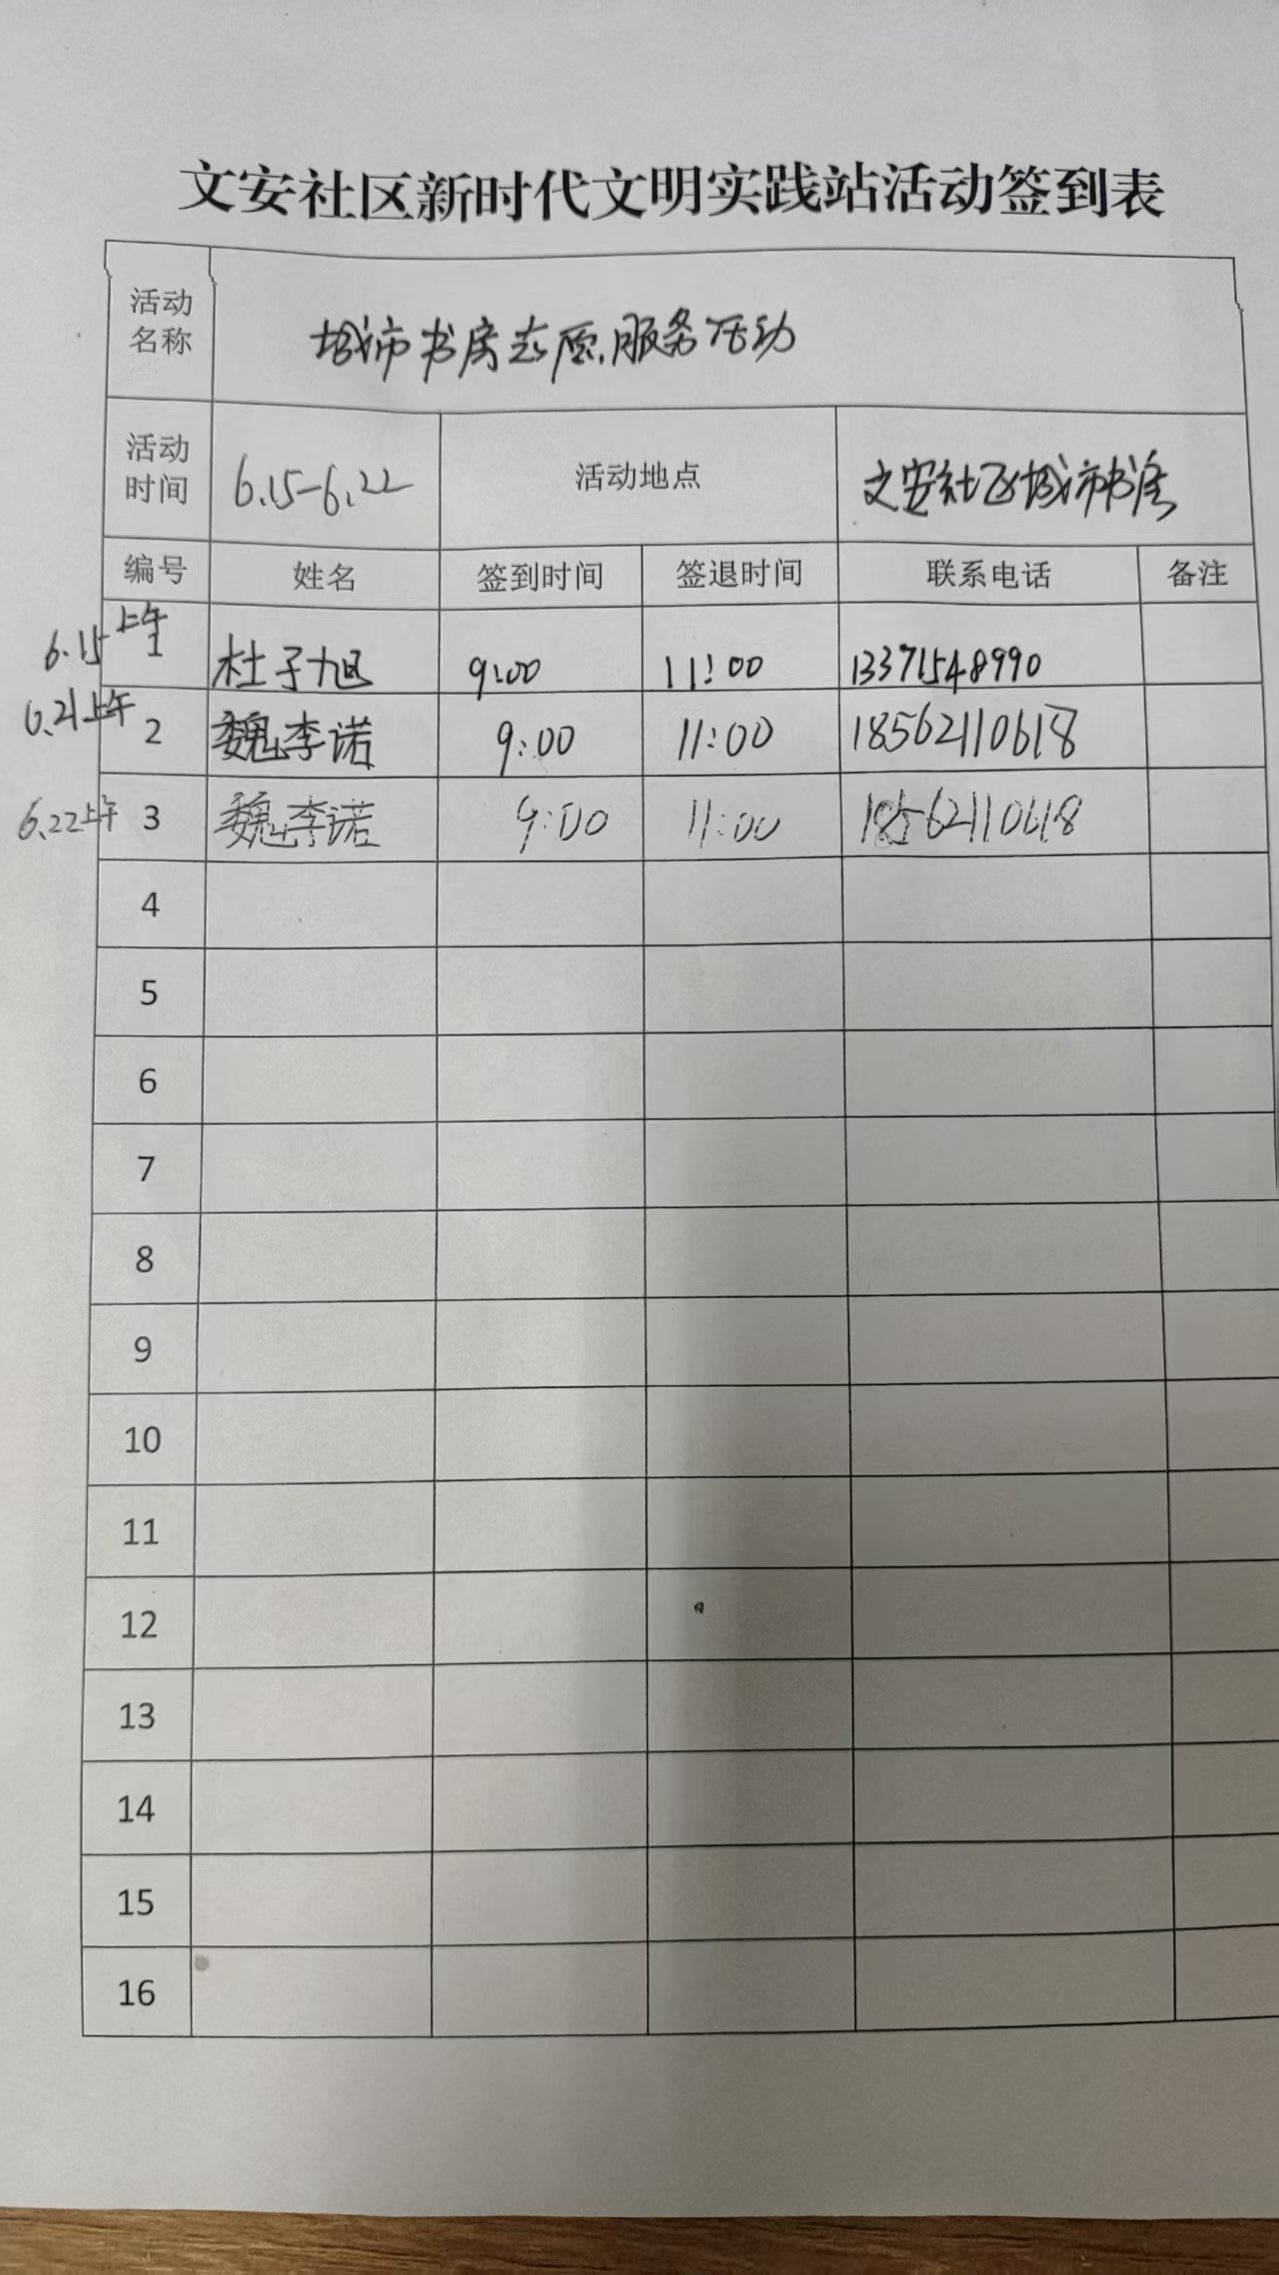 文安社区新时代文明实践站活动签到表
活动名称 城市书房志愿服务活动
活动时间 6.15-6.22 活动地点 文安社区城市书房
编号 姓名 签到时间 签退时间 联系电话 备注
6.15上午 1 杜子旭 9:00 11:00 13371548990
6.21上午 2 魏李诺 9:00 11:00 18562110618
6.22上午 3 魏李诺 9:00 11:00 18562110618
4
5
6
7
8
9
10
11
12
13
14
15
16